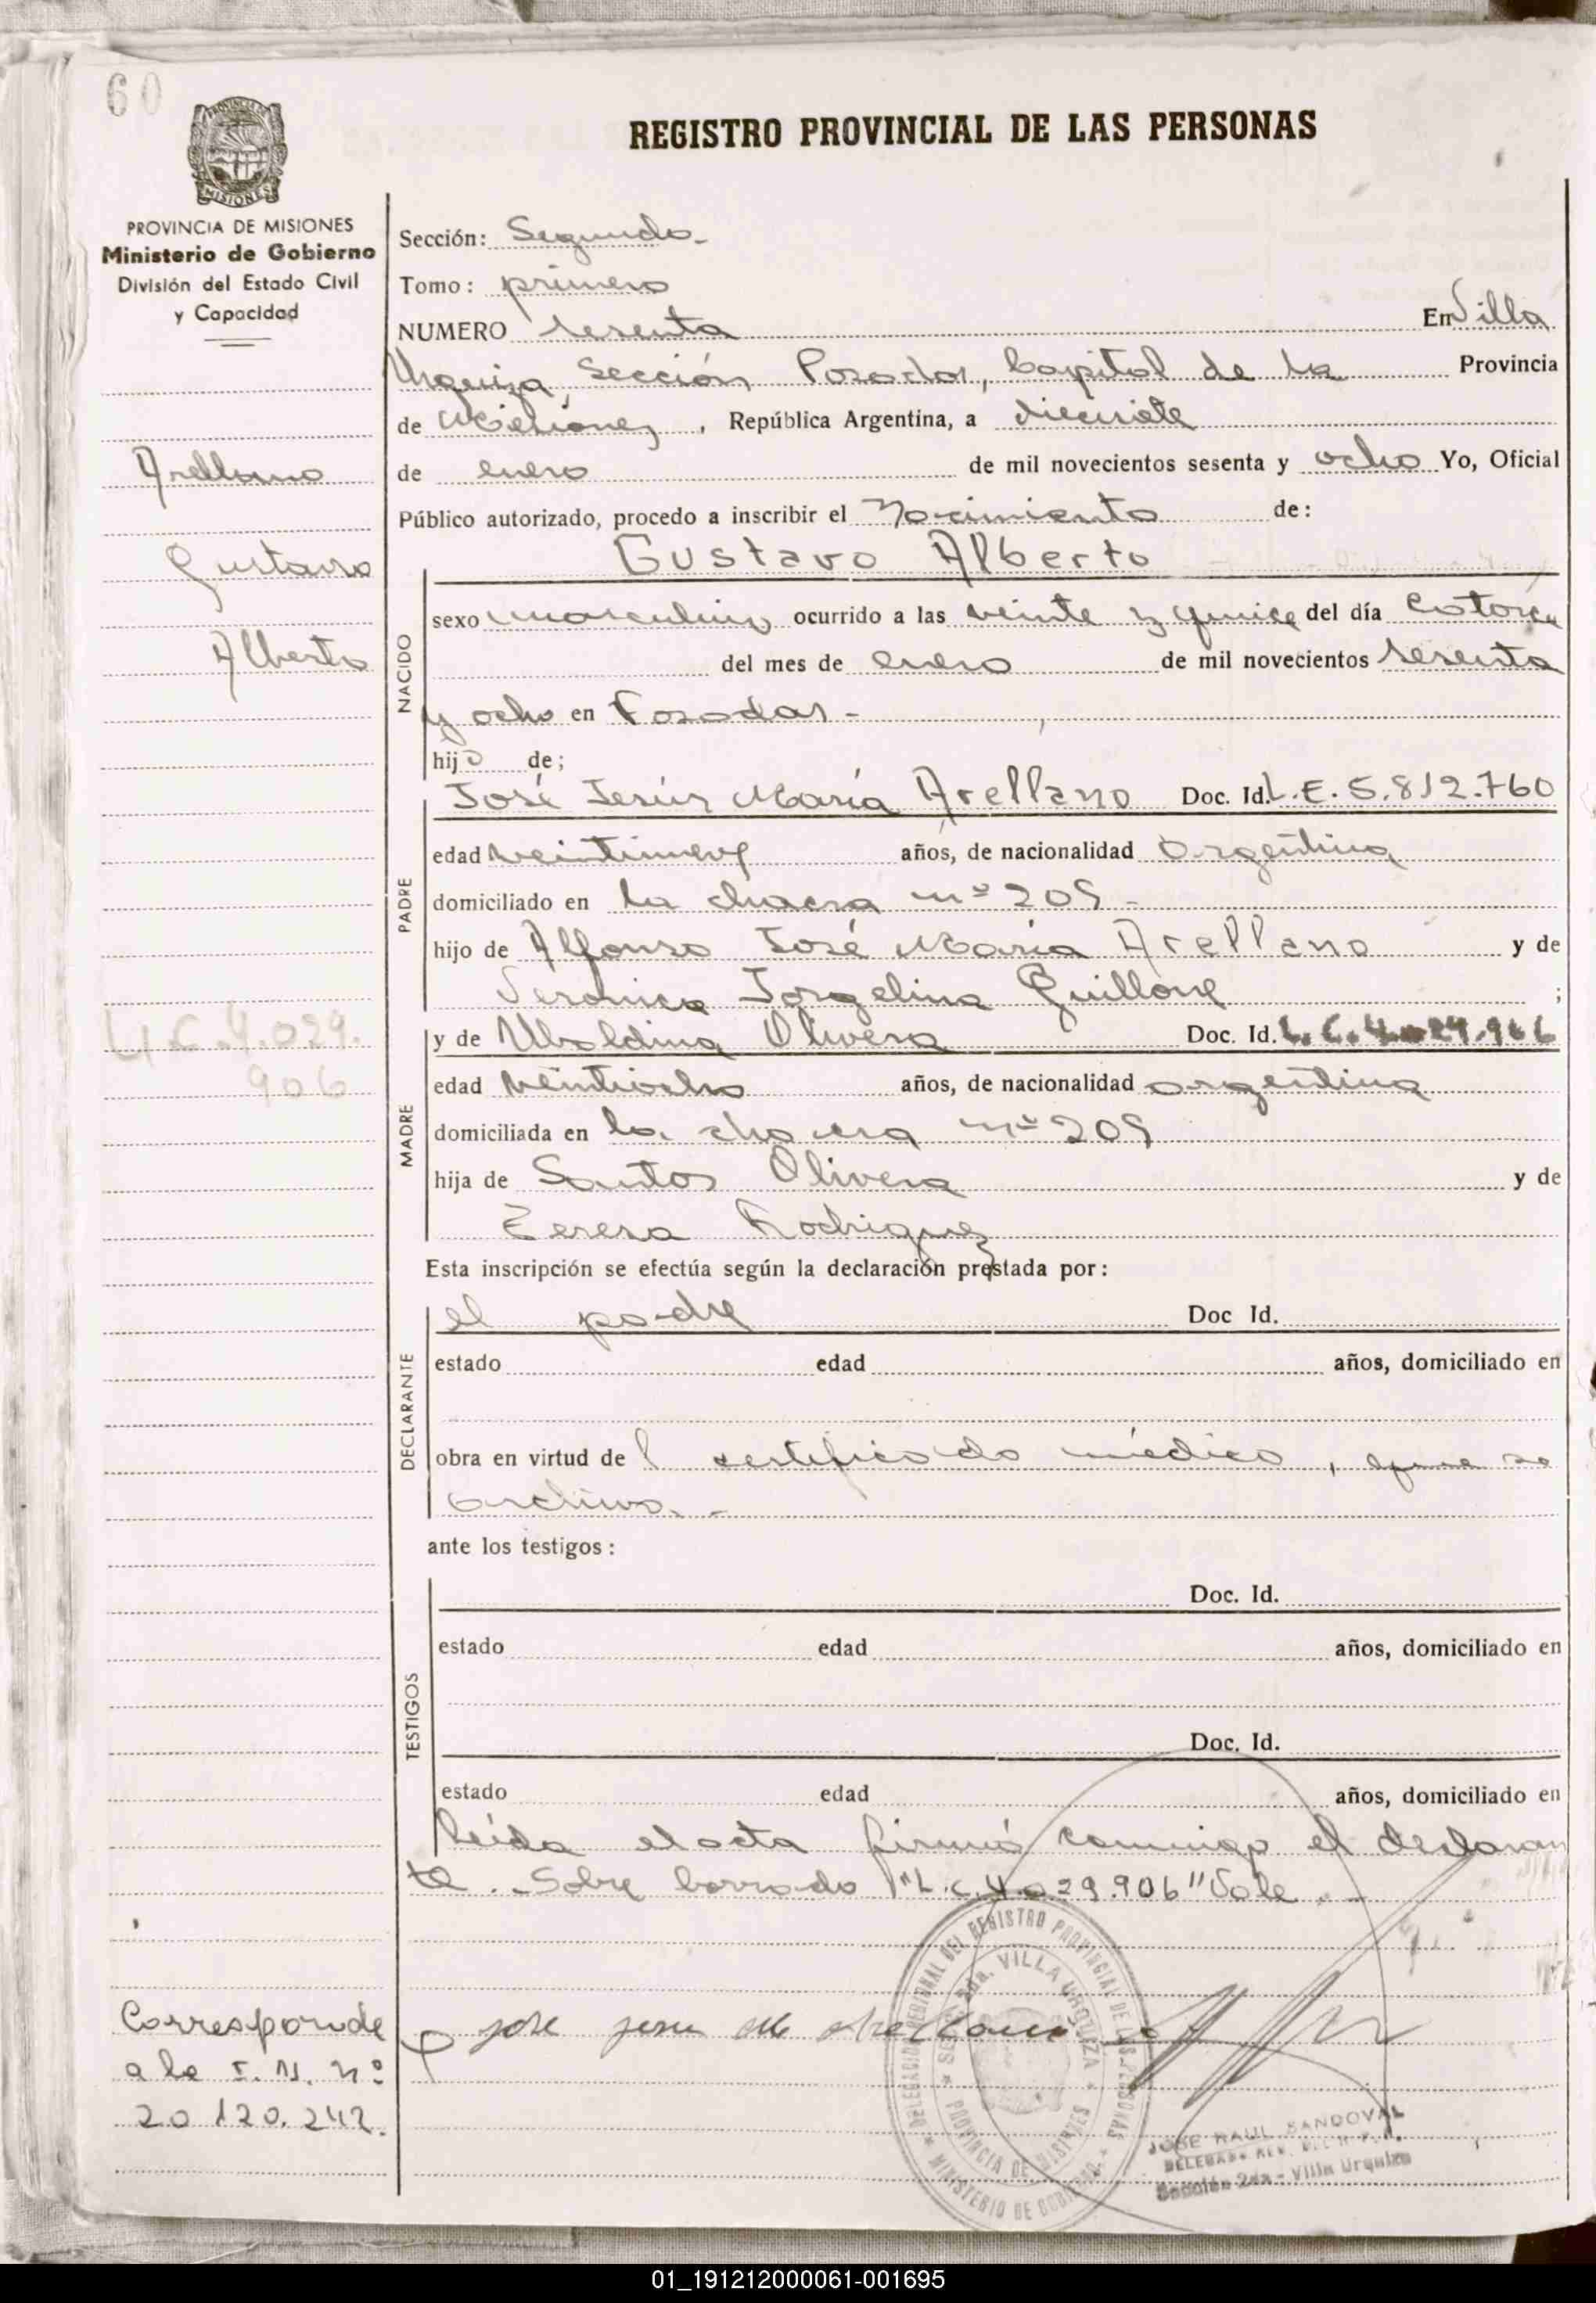 60
PROVINCIA DE
MISIONES
REGISTRO PROVINCIAL DE LAS PERSONAS
PROVINCIA DE MISIONES
Ministerio de Gobierno
División del Estado Civil
y Capacidad
Arellano
Gustavo
Alberto
L.C.4.029.
906
Corresponde
a la I. N. nº
20 120.242.
Sección: Segunda.-
Tomo: primero
NUMERO sesenta En Villa
Urquiza, Sección Posadas, Capital de la Provincia
de Misiones, República Argentina, a diecisiete
de enero de mil novecientos sesenta y ocho Yo, Oficial
Público autorizado, procedo a inscribir el Nacimiento de:
Gustavo Alberto
NACIDO
sexo masculino ocurrido a las veinte y quince del día catorce
del mes de enero de mil novecientos sesenta
y ocho en Posadas -
hijo de;
PADRE
José Jesús María Arellano Doc. Id. L.E. 5.812.760
edad veintinueve años, de nacionalidad argentina
domiciliado en la chacra nº 209 -
hijo de Alfonso José María Arellano y de
Veronica Jorgelina Guillone ;
MADRE
y de Ubaldina Olivera Doc. Id. L.C.4.029.906
edad veintiocho años, de nacionalidad argentina
domiciliada en la chacra nº 209
hija de Santos Olivera y de
Teresa Rodriguez
Esta inscripción se efectúa según la declaración prestada por:
DECLARANTE
el padre Doc Id.
estado edad años, domiciliado en
obra en virtud de l certificado médico, que se
archiva. -
ante los testigos:
TESTIGOS
Doc. Id.
estado edad años, domiciliado en
Doc. Id.
estado edad años, domiciliado en
Leída el acta firmó conmigo el declaran
te. - Sobre borrado "L.C.4.029.906" Vale.
jose jesus M Arellano
DELEGACION REGIONAL DEL REGISTRO PROVINCIAL DE LAS PERSONAS
* MINISTERIO DE GOBIERNO *
* SECC. 2da. VILLA URQUIZA *
PROVINCIA DE MISIONES
JOSE RAUL SANDOVAL
Sección 2da - Villa Urquiza
01_191212000061-001695